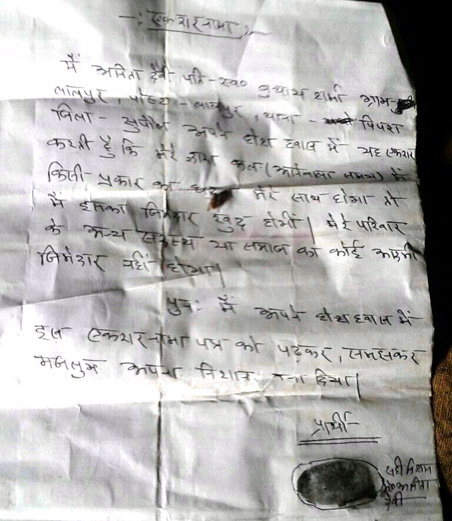 -: एकरारनामा :-
मैं अनिता देवी पति- स्व० सुभाष शर्मा ग्राम-
लालपुर, पोस्ट - लालपुर, थाना - पिपरा
जिला - सुपौल अपने होश हवास में यह एकरार
करती हूँ कि मेरे साथ कल (आनेवाला समय) में
किसी प्रकार का मेरे साथ होगा तो
मैं इसका जिमेदार खुद होगी। मेरे परिवार
के अन्य सदस्य या समाज का कोई आदमी
जिमेदार नहीं होगा।
पुनः मैं अपने होश हवास में
इस एकरारनामा पत्र को पढ़कर, समझकर
मजमुन अपना निशान बना दिया।
प्रार्थी-
सही निशान
अनिता
देवी